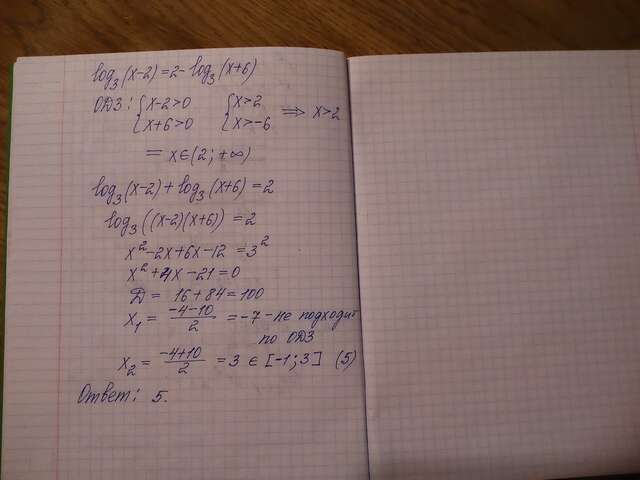 log₃(x-2)=2-log₃(x+6)
ОДЗ: {x-2>0 {x>2
{x+6>0 {x>-6 ⟹ x>2
= x∈(2;+∞)
log₃(x-2)+log₃(x+6)=2
log₃((x-2)(x+6))=2
x²-2x+6x-12=3²
x²+4x-21=0
Д= 16+84=100
x₁= (-4-10)/2 =-7-не подходит
по ОДЗ
x₂= (-4+10)/2 =3∈[-1;3] (5)
Ответ: 5.